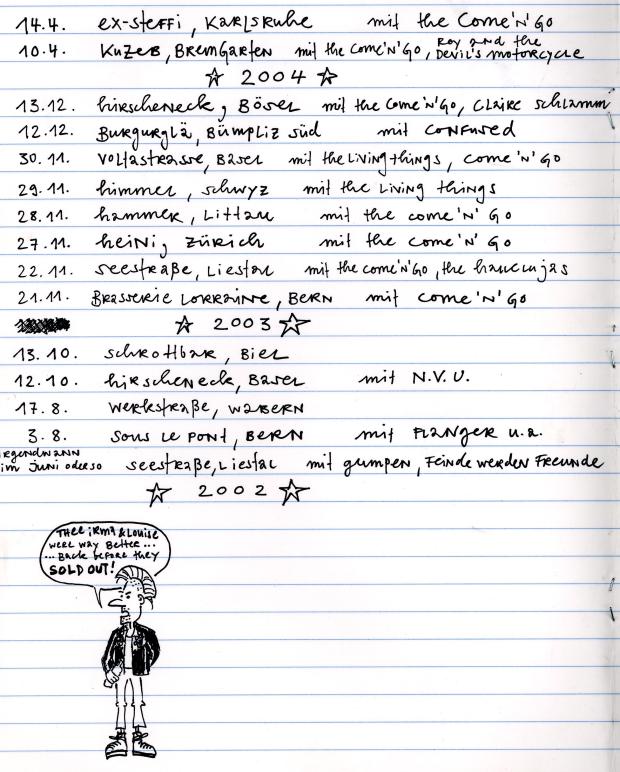 14.4. ex-steffi, Karlsruhe mit the Come'n'Go
10.4. Kuzeb, Bremgarten mit the Come'n'Go, Roy and the Devil's motorcycle
☆ 2004 ☆
13.12. hirscheneck, Bösel mit the Come'n'Go, Claire Schlamm
12.12. Burgurglä, Bümpliz Süd mit Confused
30.11. Voltastrasse, Basel mit the Living things, Come'n'Go
29.11. himmel, Schwyz mit the Living things
28.11. hammer, Littau mit the come'n'Go
27.11. heini, Zürich mit the come'n'Go
22.11. seestraße, Liestal mit the come'n'Go, the
21.11. Brasserie Lorraine, Bern mit Come'n'Go
☆ 2003 ☆
13.10. schrottbar, Biel
12.10. hirscheneck, Basel mit N.V.U.
17.8. werkstraße, wabern
3.8. sous le pont, Bern mit Flanger u.a.
irgendwann im Juni oder so seestraße, Liestal mit gumpen, Feinde werden Freunde
☆ 2002 ☆
Thee irma & Louise
were way better...
...Back before they
SOLD OUT!